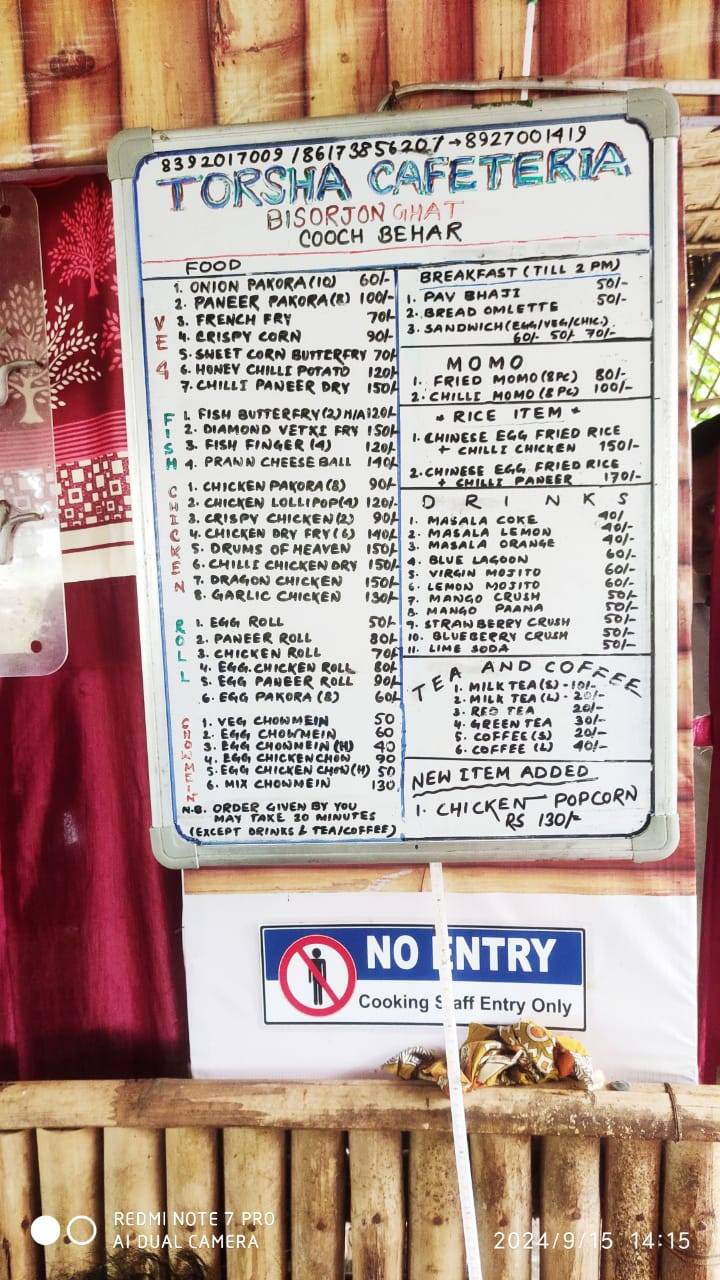 8392017009 / 86173856207 → 8927001419
TORSHA CAFETERIA
BISORJON GHAT
COOCH BEHAR
FOOD
VEG
1. ONION PAKORA (10) 60/-
2. PANEER PAKORA (8) 100/-
3. FRENCH FRY 70/-
4. CRISPY CORN 90/-
5. SWEET CORN BUTTERFRY 70/-
6. HONEY CHILLI POTATO 120/-
7. CHILLI PANEER DRY 150/-
FISH
1. FISH BUTTERFRY (2) N/A 120/-
2. DIAMOND VETKI FRY 150/-
3. FISH FINGER (4) 120/-
4. PRAWN CHEESE BALL 140/-
CHICKEN
1. CHICKEN PAKORA (8) 90/-
2. CHICKEN LOLLIPOP (4) 120/-
3. CRISPY CHICKEN (2) 90/-
4. CHICKEN DRY FRY (6) 140/-
5. DRUMS OF HEAVEN 150/-
6. CHILLI CHICKEN DRY 150/-
7. DRAGON CHICKEN 150/-
8. GARLIC CHICKEN 130/-
ROLL
1. EGG ROLL 50/-
2. PANEER ROLL 80/-
3. CHICKEN ROLL 70/-
4. EGG. CHICKEN ROLL 80/-
5. EGG PANEER ROLL 90/-
6. EGG PAKORA (8) 60/-
CHOWMEIN
1. VEG CHOWMEIN 50
2. EGG CHOWMEIN 60
3. EGG CHOWMEIN (H) 40
4. EGG CHICKEN CHOW 90
5. EGG CHICKEN CHOW (H) 50
6. MIX CHOWMEIN 130
N.B. ORDER GIVEN BY YOU
MAY TAKE 20 MINUTES
(EXCEPT DRINKS & TEA/COFFEE)
BREAKFAST (TILL 2 PM)
1. PAV BHAJI 50/-
2. BREAD OMLETTE 50/-
3. SANDWICH (EGG/VEG/CHIC.)
60/- 50/- 70/-
MOMO
1. FRIED MOMO (8PC) 80/-
2. CHILLI MOMO (8PC) 100/-
* RICE ITEM *
1. CHINESE EGG FRIED RICE
+ CHILLI CHICKEN 150/-
2. CHINESE EGG FRIED RICE
+ CHILLI PANEER 170/-
DRINKS
1. MASALA COKE 40/
2. MASALA LEMON 40/-
3. MASALA ORANGE 40/-
4. BLUE LAGOON 60/-
5. VIRGIN MOJITO 60/-
6. LEMON MOJITO 60/-
7. MANGO CRUSH 50/-
8. MANGO PAANA 50/-
9. STRAWBERRY CRUSH 50/-
10. BLUEBERRY CRUSH 50/-
11. LIME SODA 50/-
TEA AND COFFEE
1. MILK TEA (S) - 10/-
2. MILK TEA (L) - 20/-
3. RED TEA 20/-
4. GREEN TEA 30/-
5. COFFEE (S) 20/-
6. COFFEE (L) 40/-
NEW ITEM ADDED
1. CHICKEN POPCORN
RS 130/-
NO ENTRY
Cooking Staff Entry Only
REDMI NOTE 7 PRO
AI DUAL CAMERA
2024/9/15 14:15